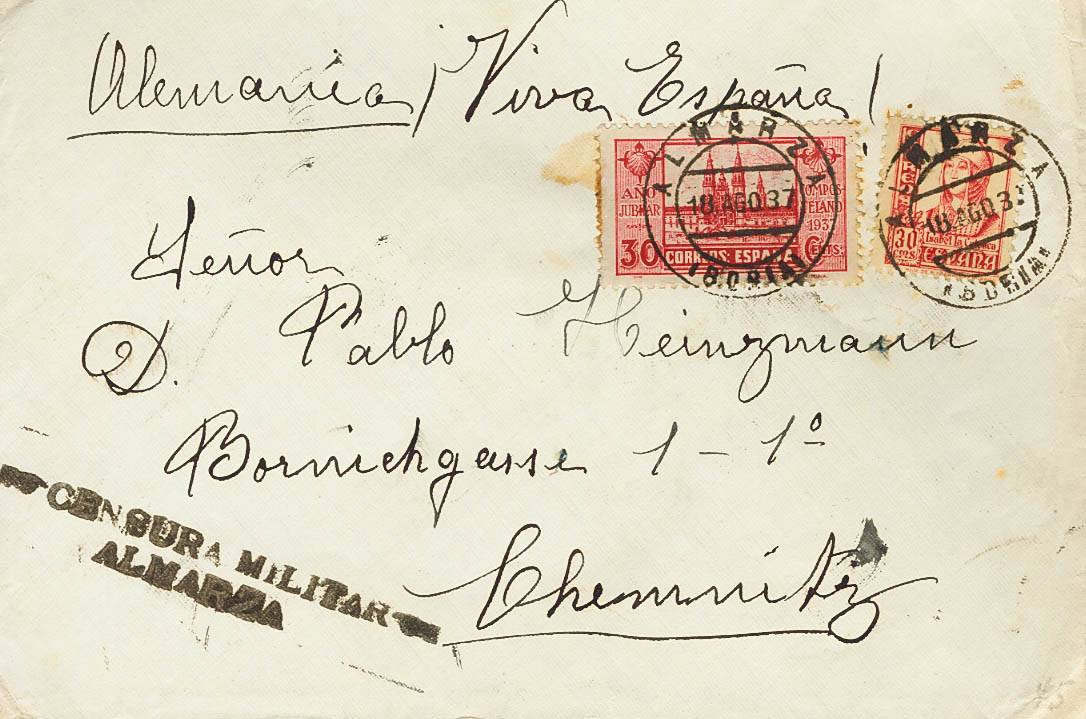 Alemania ¡Viva España!
ALMARZA
18.AGO 37
(SORIA)
AÑO JUBILAR COMPOSTELANO 1937
30 CORREOS: ESPAÑA Cents.
ALMARZA
18.AGO 37
(SORIA)
30 cts. Isabel la Católica
ESPAÑA
Señor
D. Pablo Heinzmann
Bornichgasse 1 - 1º
Chemnitz
CENSURA MILITAR
ALMARZA